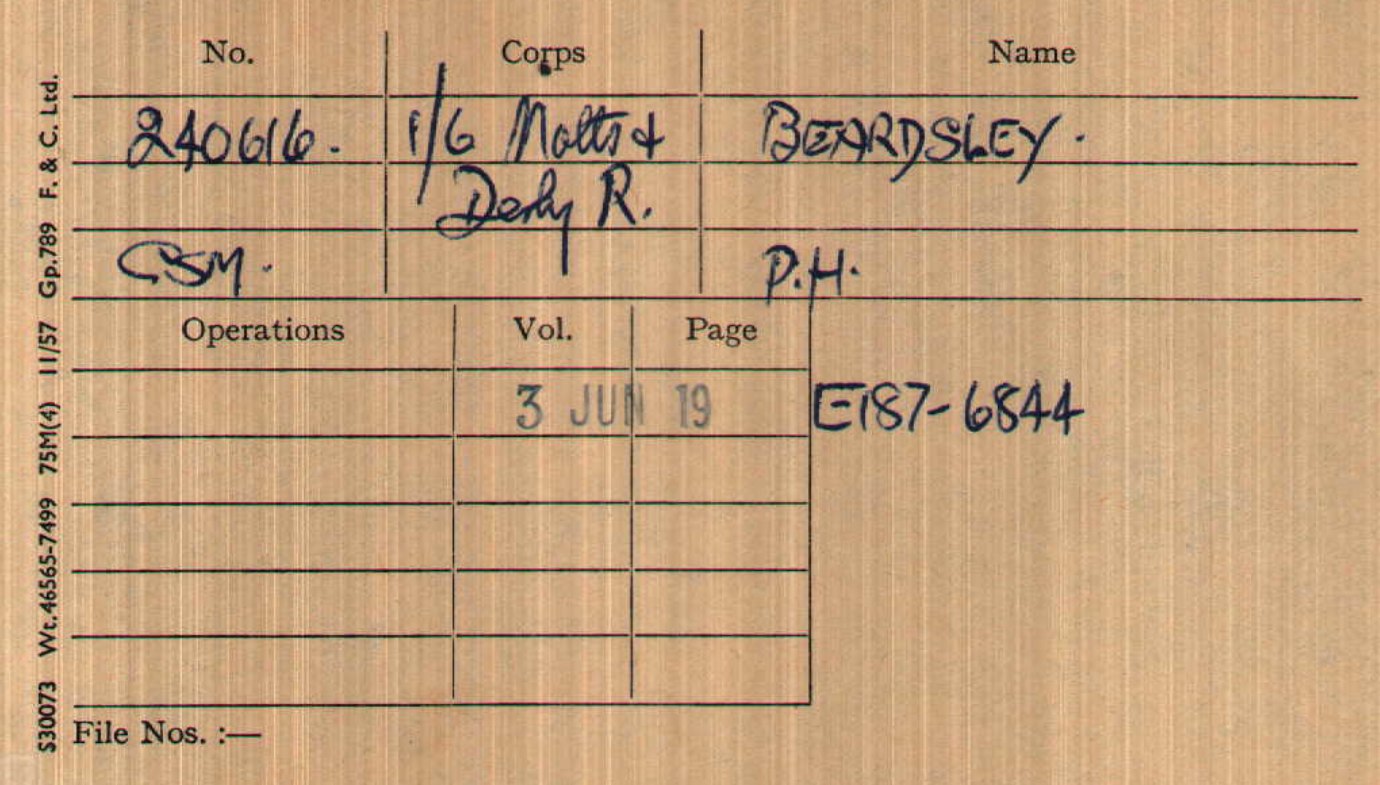 No. Corps Name
240616. 1/6 Notts & BEARDSLEY.
Derby R.
CSM. P.H.
Operations Vol. Page
3 JUN 19 E187-6844
File Nos. :—
S30073 Wt.46565-7499 75M(4) 11/57 Gp.789 F. & C. Ltd.